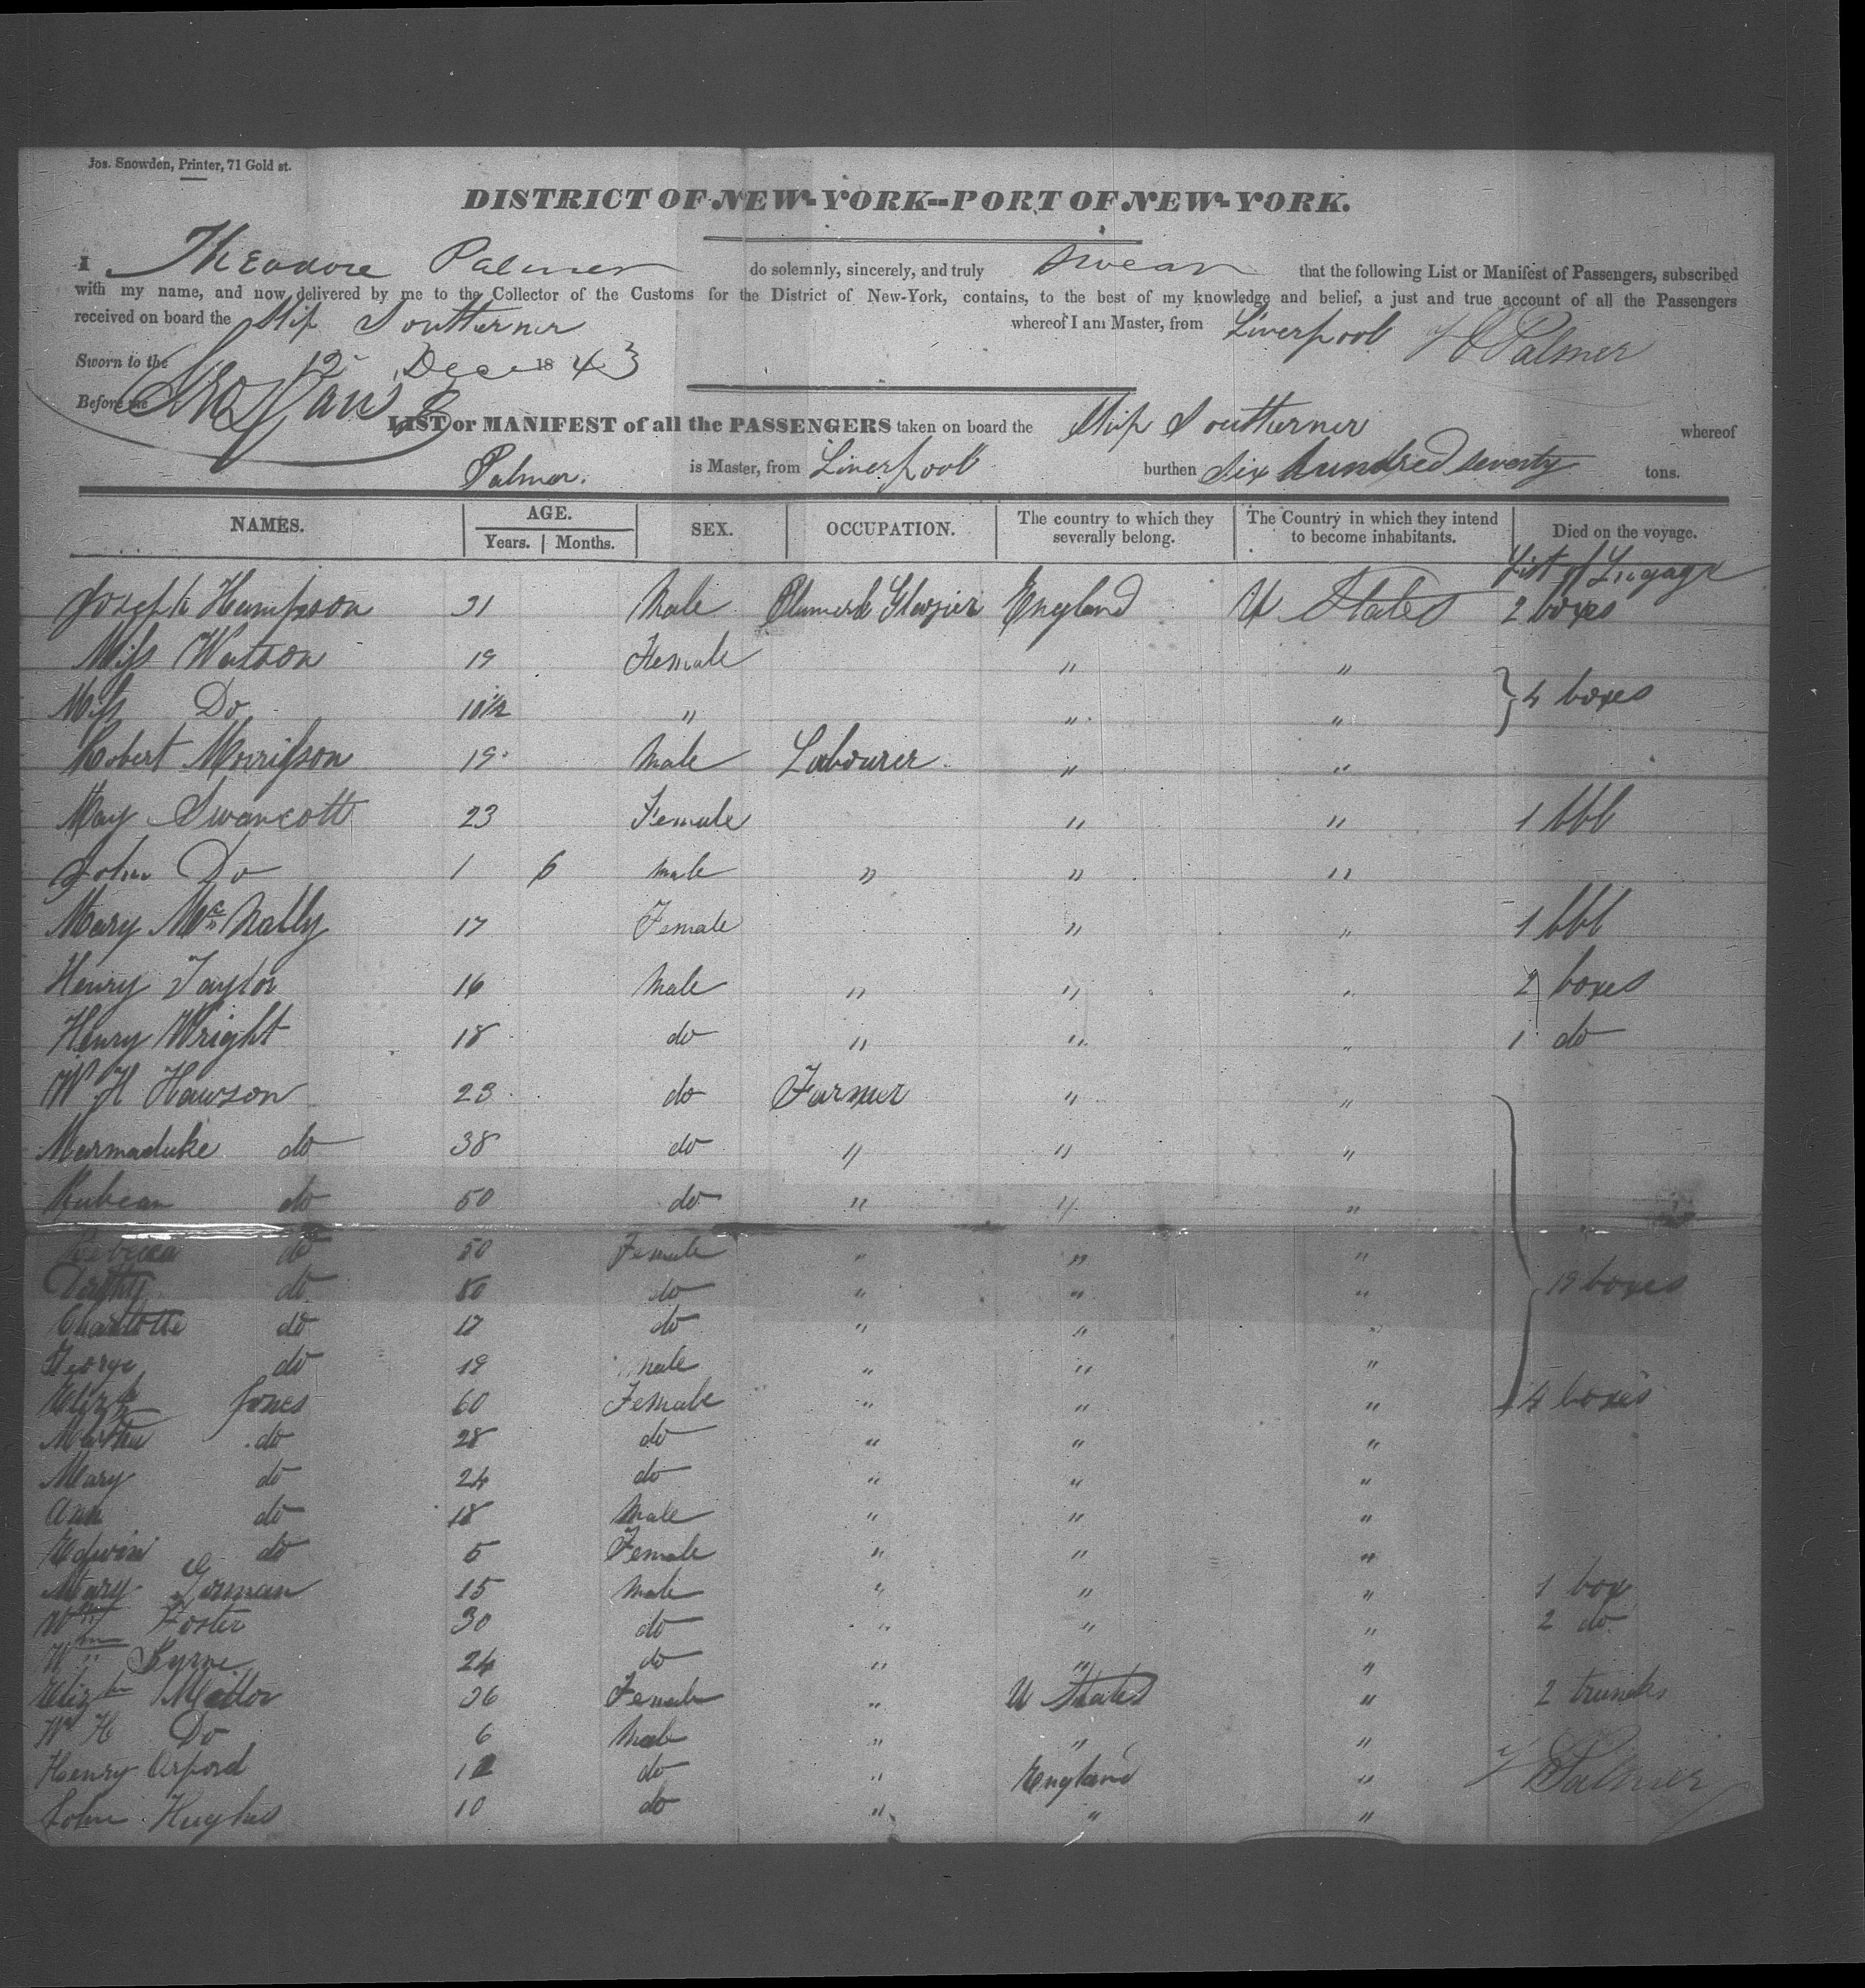 Jos. Snowden, Printer, 71 Gold st.
DISTRICT OF NEW-YORK--PORT OF NEW-YORK.
I Theodore Palmer do solemnly, sincerely, and truly swear that the following List or Manifest of Passengers, subscribed
with my name, and now delivered by me to the Collector of the Customs for the District of New-York, contains, to the best of my knowledge and belief, a just and true account of all the Passengers
received on board the Ship Southerner whereof I am Master, from Liverpool Palmer
Sworn to the 12 Dece 1843
Before me
LIST or MANIFEST of all the PASSENGERS taken on board the Ship Southerner whereof
Palmer. is Master, from Liverpool burthen Six hundred seventy tons.
NAMES. AGE. Years. Months. SEX. OCCUPATION. The country to which they severally belong. The Country in which they intend to become inhabitants. Died on the voyage.
List of Lugage
Joseph Hampson Male England U States 2 boxes
Miss Watson 19 Female " "
Miss Do 10 1/2 " " " } 4 boxes
Robert Morrisson 19 Male Labourer " "
May Swancott 23 Female " " 1 bbl
John Do 1 6 male " " "
Mary McNally 17 Female " " 1 bbl
Henry Taylor 16 Male " " " 2 boxes
Henry Wright 18 do " " " 1 do
W H Hawson 23 do Farmer " "
Marmaduke do 38 do " " "
Rubean do 50 do " " "
Rebecca do 50 Female " " "
do do " " " 19 boxes
Charlotte do 17 do " " "
George do 19 male " " "
Elizth Jones 60 Female " " " 4 boxes
Martha do 28 do " " "
Mary do 24 do " " "
Ann do 18 Male " " "
Edwin do 5 Female " " "
Mary Gorman 15 Male " " " 1 box
Wm Foster 30 do " " " 2 do
Wm Byrne 24 do " " "
Elizth Mellor 36 Female " U States " 2 trunks
W H Do 6 Male " " "
Henry Orford do " England " Palmer
John Hughes 10 do " " "